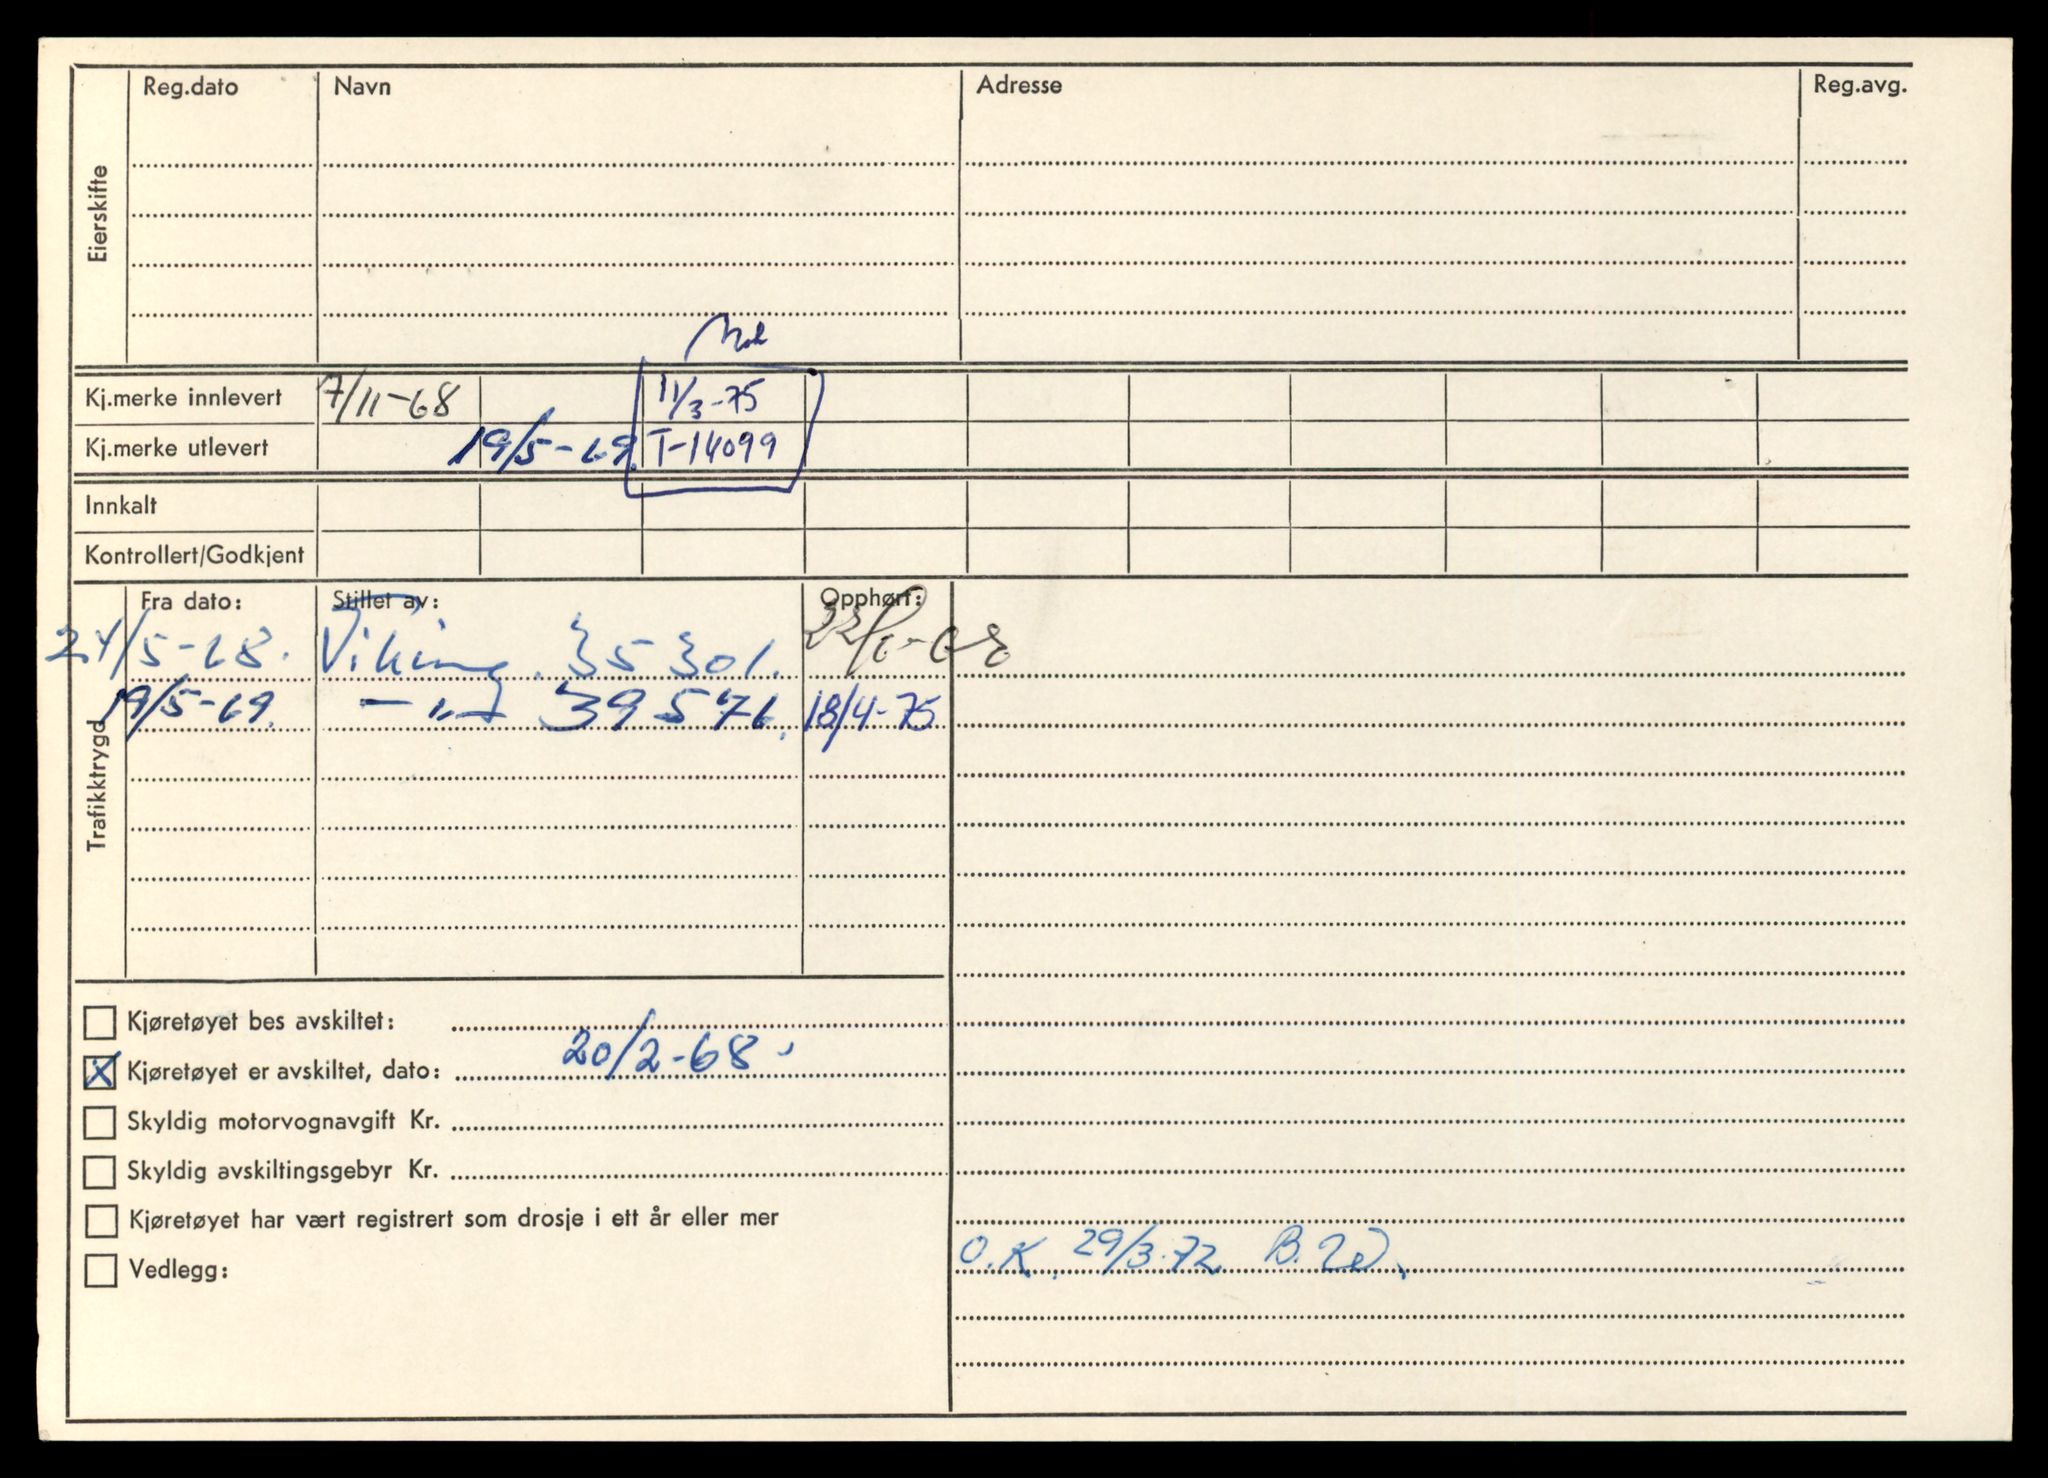 Reg.dato Navn Adresse Reg.avg.
Eierskifte
Kj.merke innlevert 7/11-68 11/3-75
Kj.merke utlevert 19/5-69. T-14099
Innkalt
Kontrollert/Godkjent
Trafikktrygd
Fra dato: Stillet av: Opphørt:
24/5-68. Viking. 35301.
19/5-69. —"— 39571. 18/4-75
Kjøretøyet bes avskiltet:
X Kjøretøyet er avskiltet, dato: 20/2-68.
Skyldig motorvognavgift Kr.
Skyldig avskiltingsgebyr Kr.
Kjøretøyet har vært registrert som drosje i ett år eller mer
Vedlegg:
O.K. 29/3-72 B.